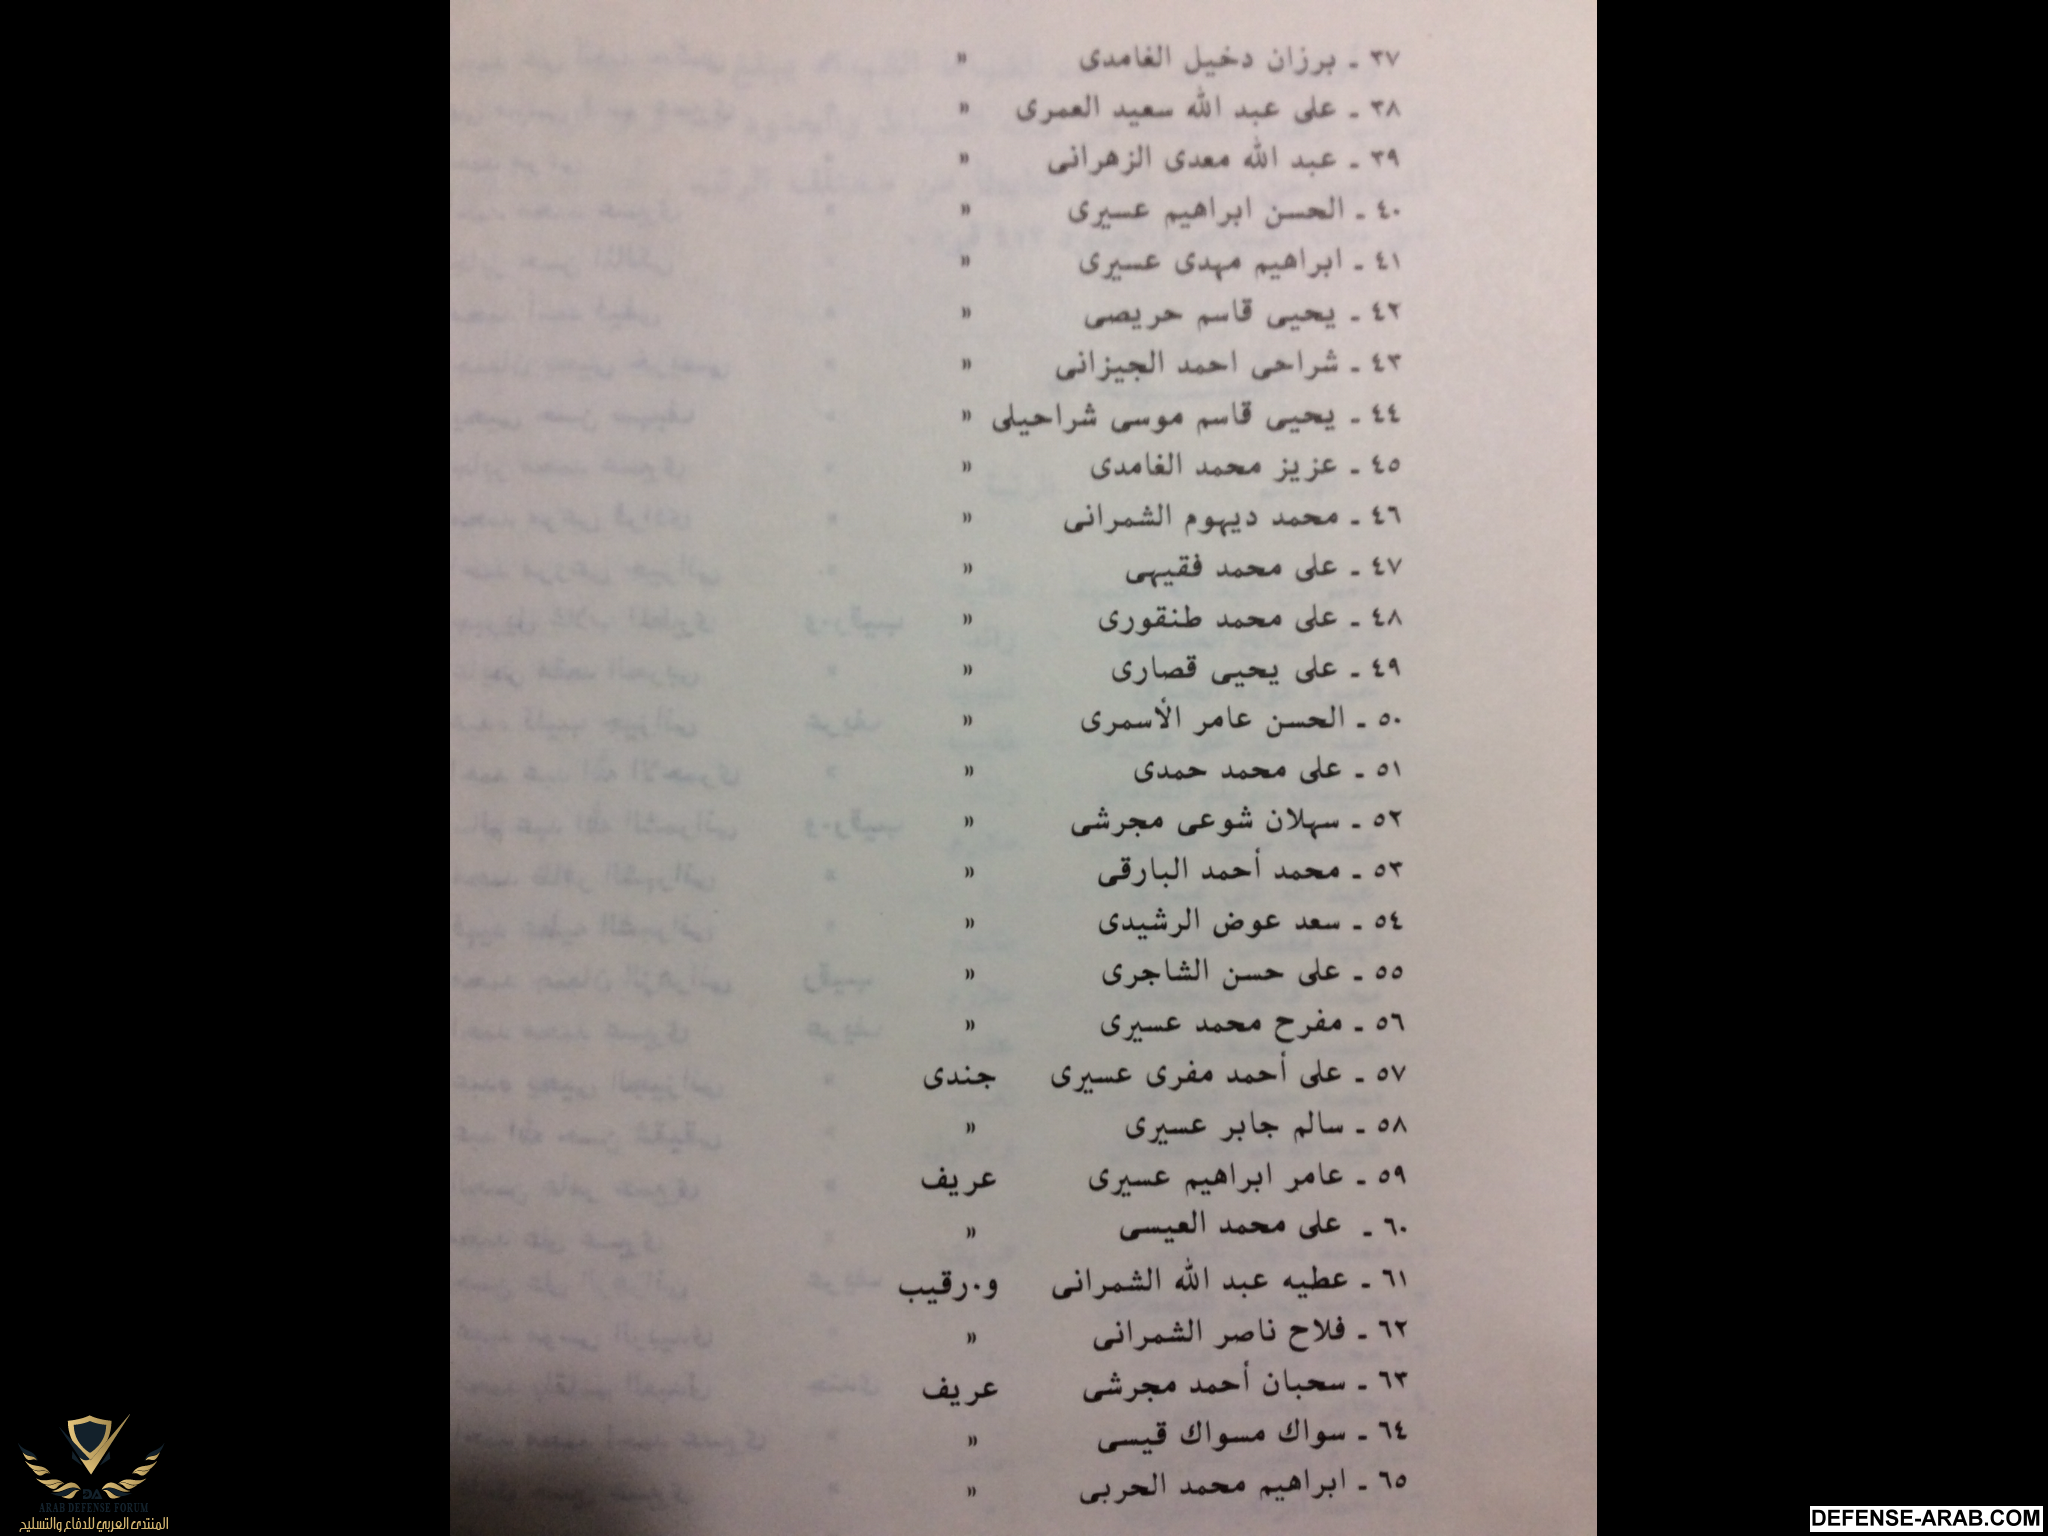 ٣٧ ـ برزان دخيل الغامدى »
٣٨ ـ على عبد الله سعيد العمرى »
٣٩ ـ عبد الله معدى الزهرانى »
٤٠ ـ الحسن ابراهيم عسيرى »
٤١ ـ ابراهيم مهدى عسيرى »
٤٢ ـ يحيى قاسم حريصى »
٤٣ ـ شراحى احمد الجيزانى »
٤٤ ـ يحيى قاسم موسى شراحيلى »
٤٥ ـ عزيز محمد الغامدى »
٤٦ ـ محمد ديهوم الشمرانى »
٤٧ ـ على محمد فقيهى »
٤٨ ـ على محمد طنقورى »
٤٩ ـ على يحيى قصارى »
٥٠ ـ الحسن عامر الأسمرى »
٥١ ـ على محمد حمدى »
٥٢ ـ سهلان شوعى مجرشى »
٥٣ ـ محمد أحمد البارقى »
٥٤ ـ سعد عوض الرشيدى »
٥٥ ـ على حسن الشاجرى »
٥٦ ـ مفرح محمد عسيرى »
٥٧ ـ على أحمد مفرى عسيرى جندى
٥٨ ـ سالم جابر عسيرى »
٥٩ ـ عامر ابراهيم عسيرى عريف
٦٠ ـ على محمد العيسى »
٦١ ـ عطيه عبد الله الشمرانى و.رقيب
٦٢ ـ فلاح ناصر الشمرانى »
٦٣ ـ سحبان أحمد مجرشى عريف
٦٤ ـ سواك مسواك قيسى »
٦٥ ـ ابراهيم محمد الحربى »
DA
ARAB DEFENSE FORUM
المنتدى العربي للدفاع والتسليح
DEFENSE-ARAB.COM